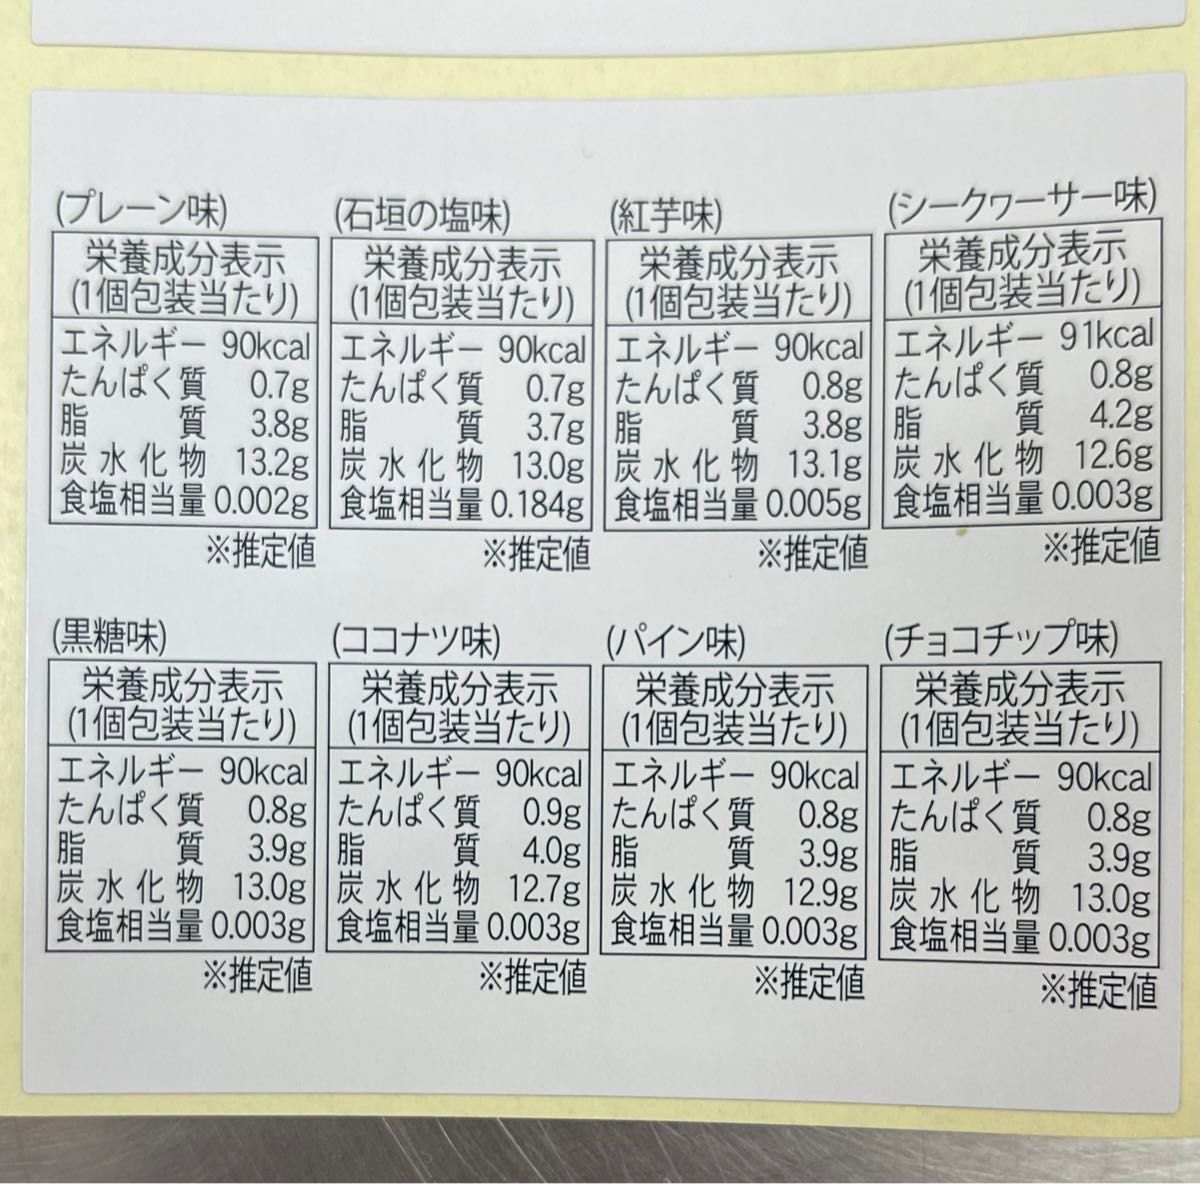 (プレーン味)
栄養成分表示
(1個包装当たり)
エネルギー 90kcal
たんぱく質 0.7g
脂質 3.8g
炭水化物 13.2g
食塩相当量 0.002g
※推定値
(石垣の塩味)
栄養成分表示
(1個包装当たり)
エネルギー 90kcal
たんぱく質 0.7g
脂質 3.7g
炭水化物 13.0g
食塩相当量 0.184g
※推定値
(紅芋味)
栄養成分表示
(1個包装当たり)
エネルギー 90kcal
たんぱく質 0.8g
脂質 3.8g
炭水化物 13.1g
食塩相当量 0.005g
※推定値
(シークヮーサー味)
栄養成分表示
(1個包装当たり)
エネルギー 91kcal
たんぱく質 0.8g
脂質 4.2g
炭水化物 12.6g
食塩相当量 0.003g
※推定値
(黒糖味)
栄養成分表示
(1個包装当たり)
エネルギー 90kcal
たんぱく質 0.8g
脂質 3.9g
炭水化物 13.0g
食塩相当量 0.003g
※推定値
(ココナツ味)
栄養成分表示
(1個包装当たり)
エネルギー 90kcal
たんぱく質 0.9g
脂質 4.0g
炭水化物 12.7g
食塩相当量 0.003g
※推定値
(パイン味)
栄養成分表示
(1個包装当たり)
エネルギー 90kcal
たんぱく質 0.8g
脂質 3.9g
炭水化物 12.9g
食塩相当量 0.003g
※推定値
(チョコチップ味)
栄養成分表示
(1個包装当たり)
エネルギー 90kcal
たんぱく質 0.8g
脂質 3.9g
炭水化物 13.0g
食塩相当量 0.003g
※推定値